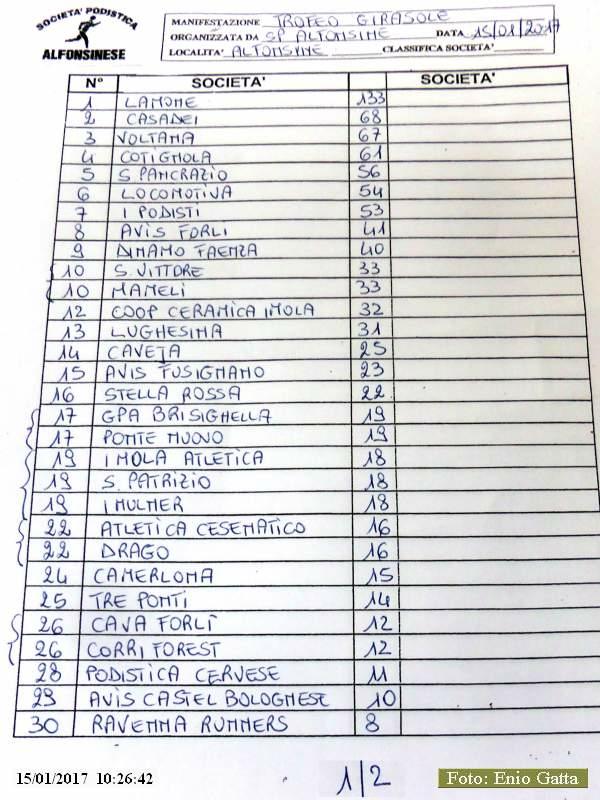 SOCIETA' PODISTICA
ALFONSINESE
MANIFESTAZIONE TROFEO GIRASOLE
ORGANIZZATA DA SP ALFONSINE DATA 15/01/2017
LOCALITA' ALFONSINE CLASSIFICA SOCIETA'
N° SOCIETA' SOCIETA'
1 LAMONE 133
2 CASADEI 68
3 VOLTANA 67
4 COTIGNOLA 61
5 S.PANCRAZIO 56
6 LOCOMOTIVA 54
7 I PODISTI 53
8 AVIS FORLI 41
9 DINAMO FAENZA 40
10 S.VITTORE 33
10 MAMELI 33
12 COOP CERAMICA IMOLA 32
13 LUGHESINA 31
14 CAVEJA 25
15 AVIS FUSIGNANO 23
16 STELLA ROSSA 22
17 GPA BRISIGHELLA 19
17 PONTE NUOVO 19
19 IMOLA ATLETICA 18
19 S. PATRIZIO 18
19 INULNER 18
22 ATLETICA CESENATICO 16
22 DRAGO 16
24 CAMERLONA 15
25 TRE PONTI 14
26 CAVA FORLÌ 12
26 CORRI FOREST 12
28 PODISTICA CERVESE 11
29 AVIS CASTEL BOLOGNESE 10
30 RAVENNA RUNNERS 8
1/2
15/01/2017 10:26:42
Foto: Enio Gatta